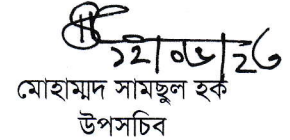 ১২|০৬|২৩
মোহাম্মদ সামছুল হক
উপসচিব